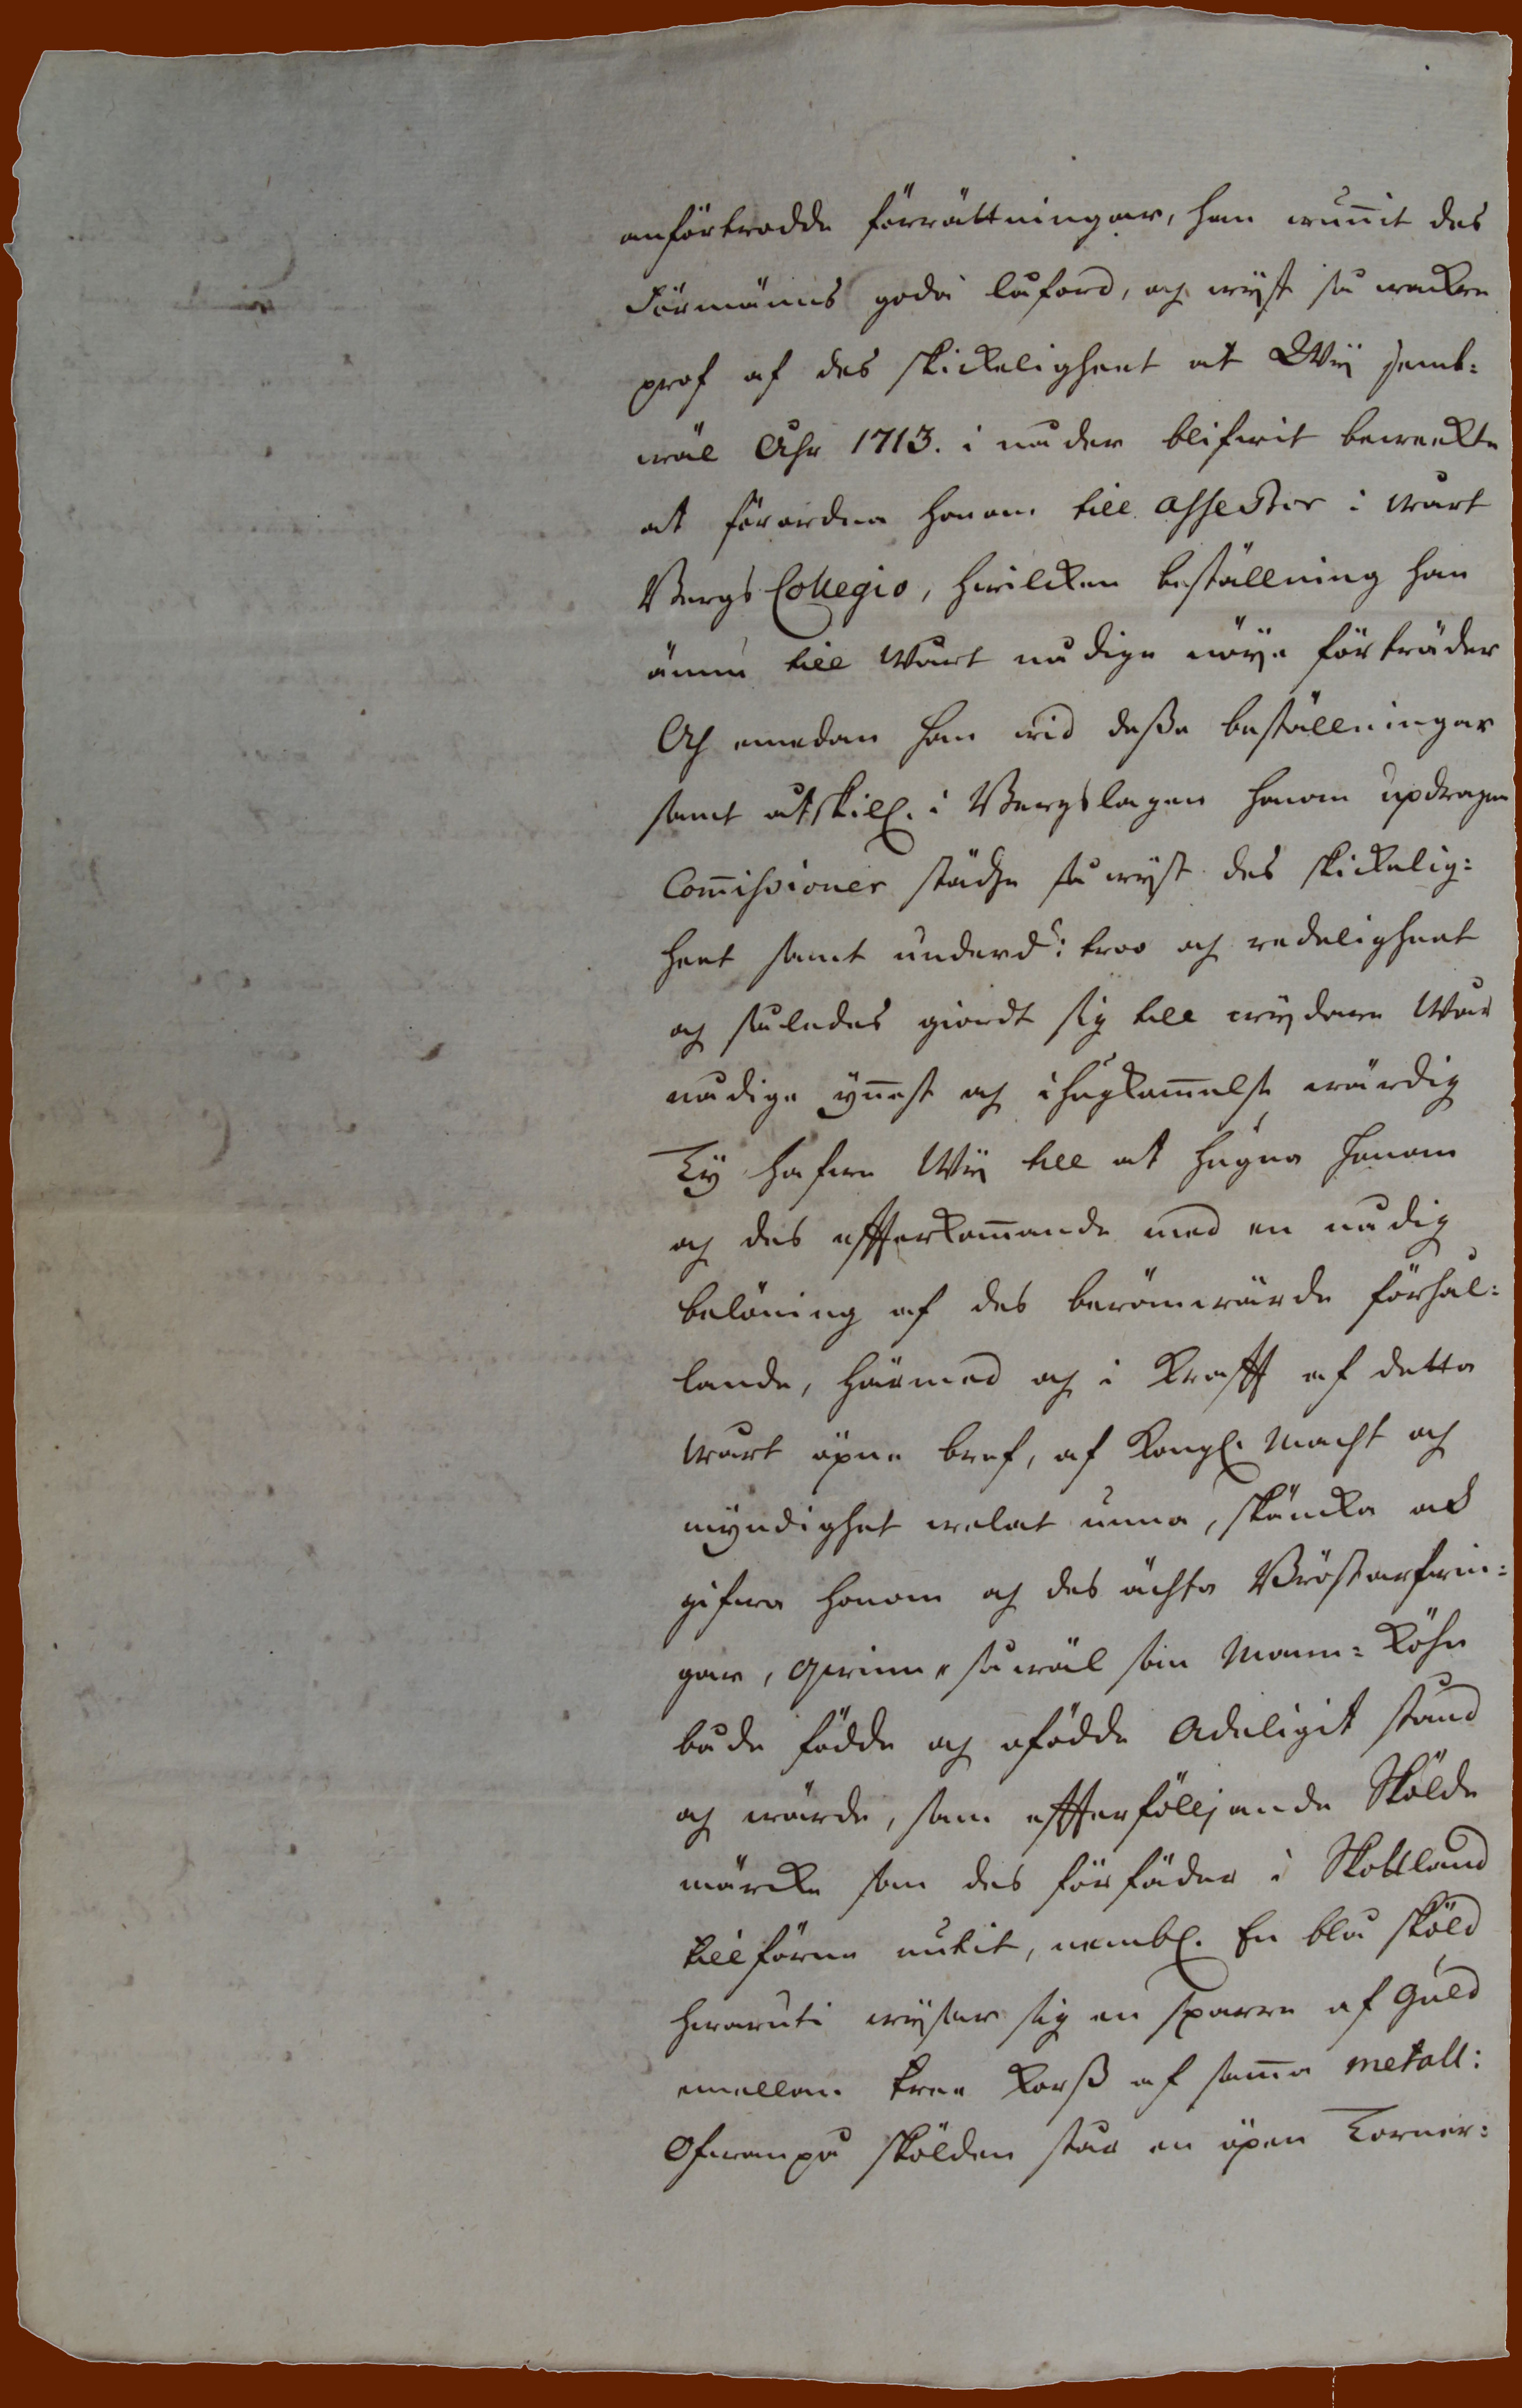 anförtrodde förrättningar, han wunnit des
Förmäns goda låford, och wijst så wackre
prof af des skickeligheet at Wij jemb:
wäl Åhr 1713. i nåder blifwit bewekte
at förordna honom till Assessor i wårt
Bergs Collegio, hwilcken beställning han
ännu till Wårt nådige nöije förträder
Och emedan han wid deße beställningar
samt åtskill. i Bergslagen honom updragne
Com̄issioner städse så wijst des skickelig:
heet samt underd: troo och redeligheet
och således giordt sig till wijdare Wår
nådige ÿn̄est och ihugkom̄else wärdig
Ty hafwe Wij till at hugna honom
och des effterkom̄ande med en nådig
belöning af des berömwärde förhål:
lande, härmed och i Krafft af detta
wårt öpne bref, af Kongl. Macht och
myndighet welat unna, skäncka och
gifwa honom och des ächta Bröstarfwin:
gar, Qwinn, såwäl som Mann=Köhn
både födde och ofödde Adeligit stånd
och wärde, samt effterfölljande Skölde
märcke som des förfäder i Skottland
tillförne nutit, nembl. En blå sköld
hwaruti wijsar sig en sparre af Guld
emellan tree Korß af sam̄a metall:
Ofwanpå skölden står en öpen Torner: